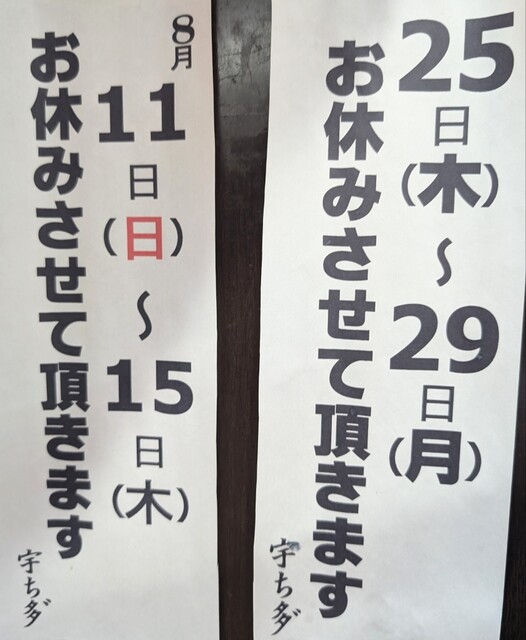 25日(木)～29日(月)
お休みさせて頂きます
宇ち多゛
8月
11日(日)～15日(木)
お休みさせて頂きます
宇ち多゛